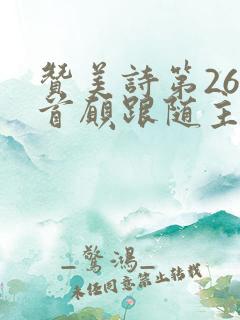 赞美詩第26
首願跟随主
_驚鴻_
未经同意禁止转载